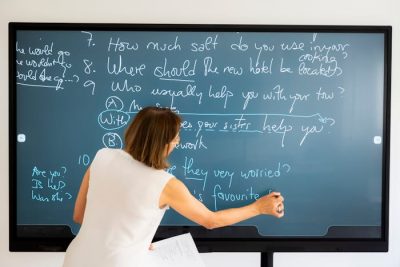 he would go
7. How much salt do you use in your
cooking?
8. Where should the new hotel be located?
9 Who usually help you with your tow?
A
With
does your sister help you?
B
work
10
they very worried?
's favourite
Are you?
Is he?
Was she?